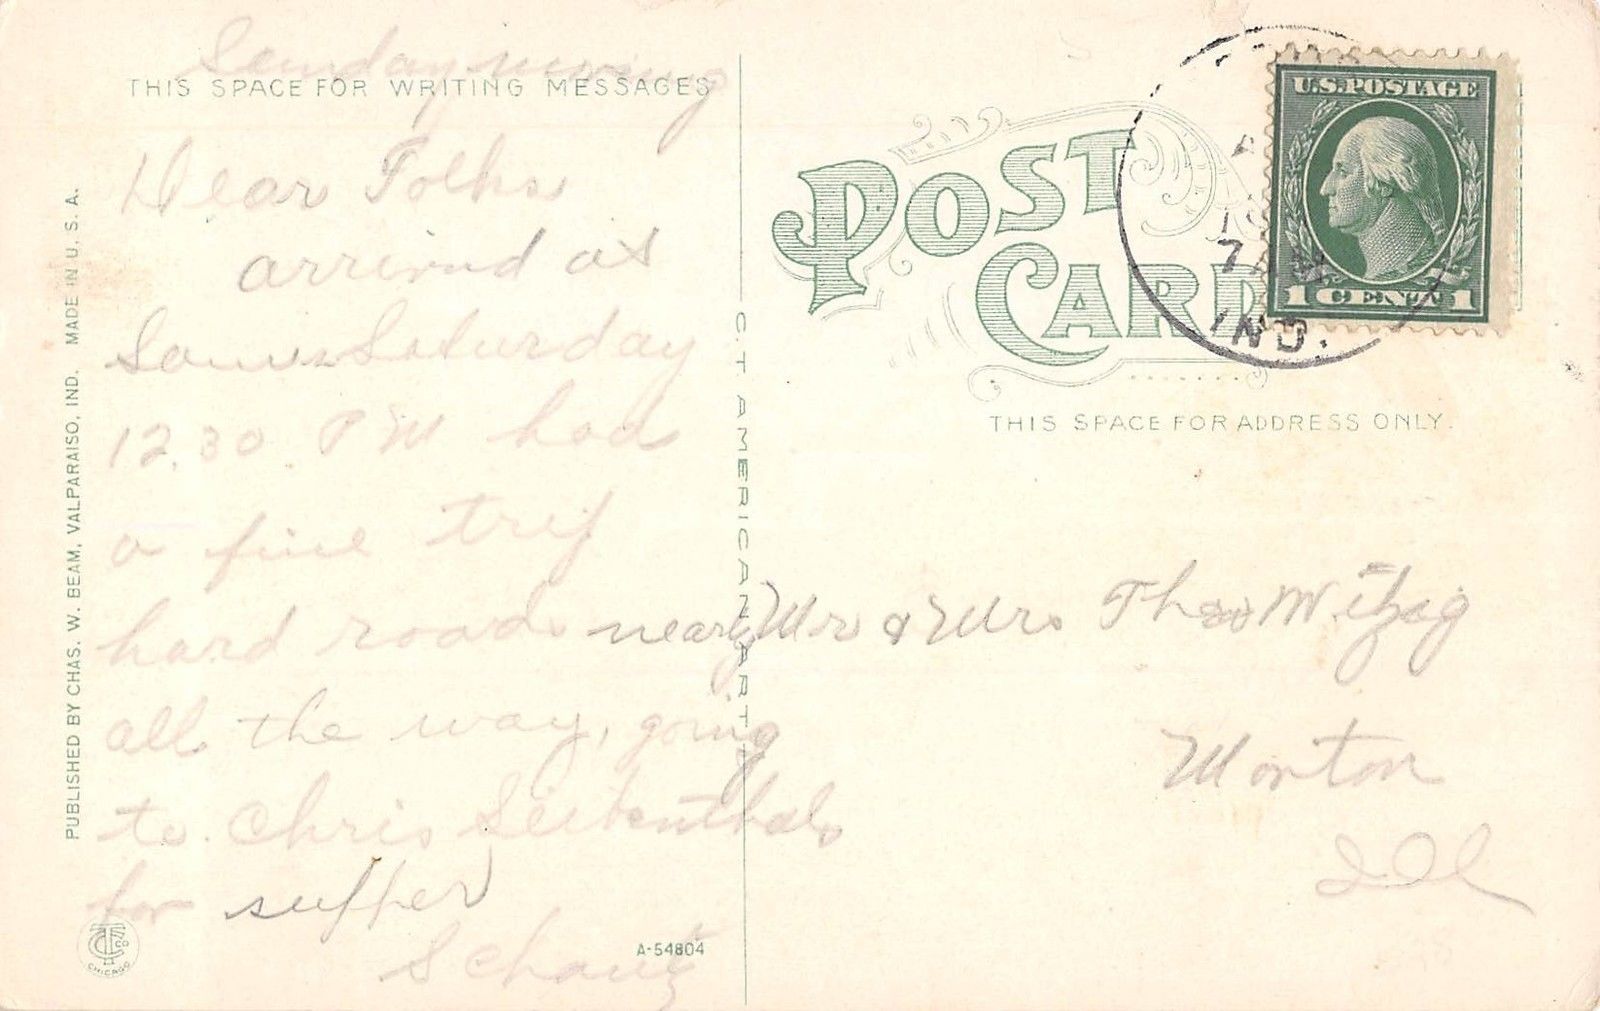 Sunday morning
THIS SPACE FOR WRITING MESSAGES
Dear Folks
arrived at
Saturday
12.30 P M had
a fine trip
hard roads nearly
all the way, going
to Chris Seibenthals
for supper
Schantz
PUBLISHED BY CHAS. W. BEAM, VALPARAISO, IND. MADE IN U. S. A.
C. T. AMERICAN ART
CHICAGO
A-54804
POST
CARD
U.S. POSTAGE
1 CENT 1
7 AM
IND.
THIS SPACE FOR ADDRESS ONLY.
Mr & Mrs Theo Witzig
Morton
Ill